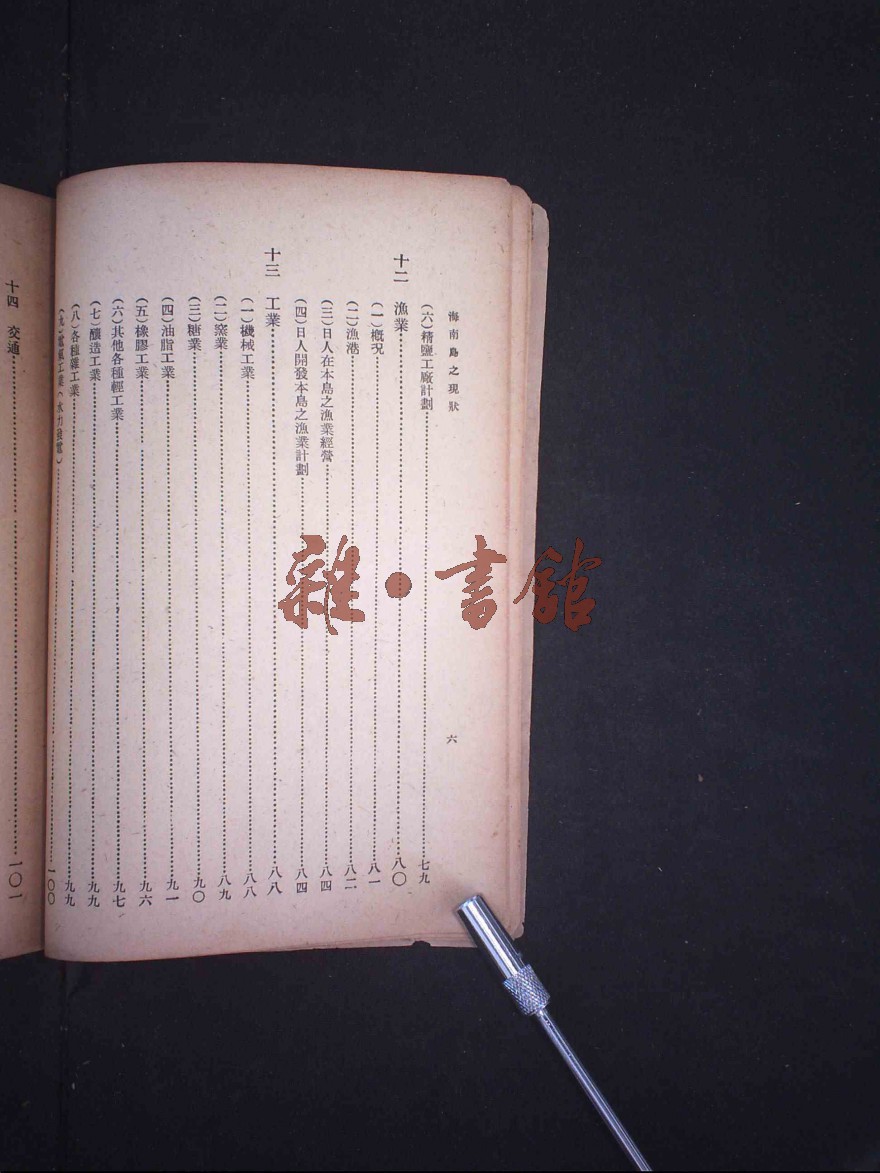 海南島之現狀
六
(六)精鹽工廠計劃……七九
十二 漁業……八〇
(一)概況……八一
(二)漁港……八二
(三)日人在本島之漁業經營……八四
(四)日人開發本島之漁業計劃……八四
十三 工業……八八
(一)機械工業……八八
(二)窯業……八九
(三)糖業……九〇
(四)油脂工業……九一
(五)橡膠工業……九六
(六)其他各種輕工業……九七
(七)釀造工業……九九
(八)各種雜工業……九九
(九)電氣工業(水力發電)……一〇〇
十四 交通……一〇一
雜·書館